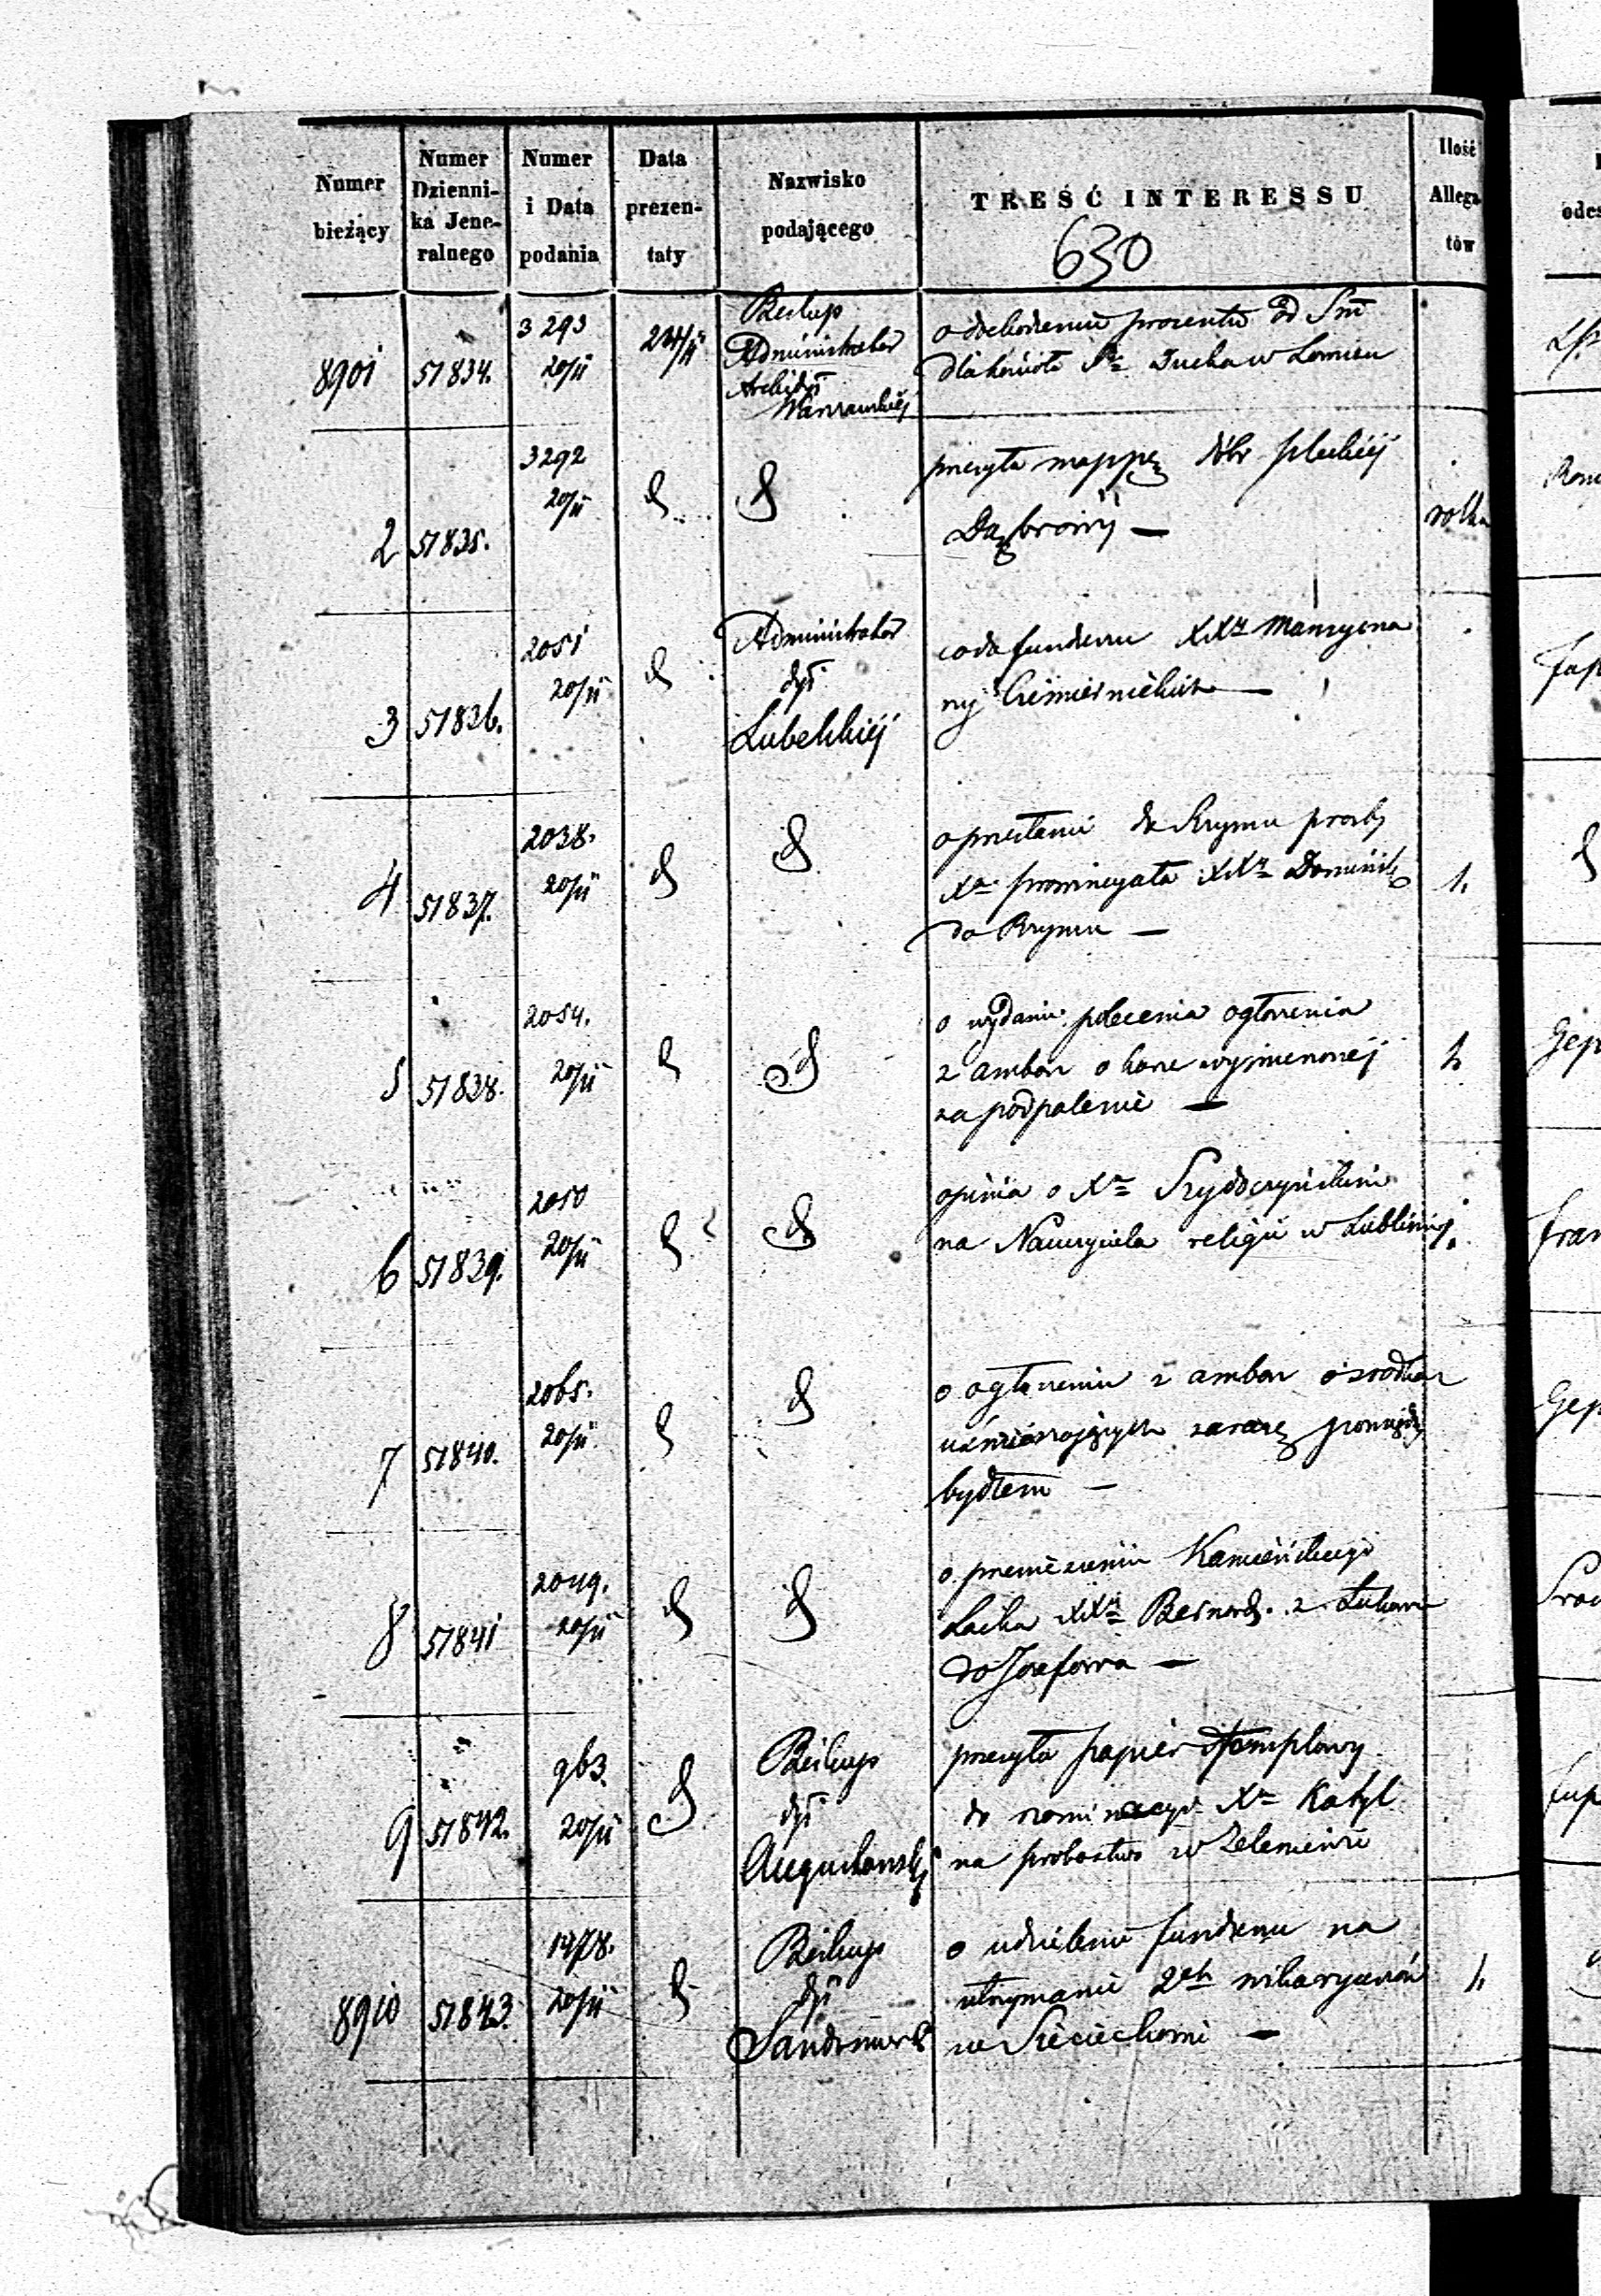 630
Numer bieżący
Numer Dzienni-ka Jene-ralnego
Numer i Data podania
Data prezen-taty
Nazwisko podającego
TREŚĆ INTERESSU
Ilość Allega-tów
8901 51834. 3293 20/11
Biskup
Administrator
Archidyi
Warszawskiej
o dochodzeniu procentu od Sm̄
dla kościoła Sgo Ducha w
2 51835. 3292 20/11 d d
przesyła mappę dóbr
Dąbrowy —
rolka
3 51836. 2051 20/11 d
Administrator
dyi
Lubelskiej
co do funduszu XXzy Mansyona
ny —
4 51837. 2038. 20/11 d d
o przesłanie do Rzymu prośby
Xa prowincyała XXzy Dominik
do Rzymu —
1.
5 51838. 2054. 20/11 d d
o wydanie polecenia ogłoszenia
z ambon o karze wymierzonej
za podpalenie —
1.
6 51839. 2050 20/11 d d
opinia o Xu
na Nauczyciela religii w Lublinie
7 51840. 2065. 20/11 d d
o ogłoszeniu z ambon o środkach
uśmierzających zarazę pomiędzy
bydłem —
8 51841 2049. 20/11 d d
o przeniesieniu Kamieńskiego
Laika XXy Bernard. z Łukowa
do Józefowa —
9 51842. 963. 20/11 d
Biskup
dyi
Augustowskiej
przesyła papier stemplowy
do nominacyi Xa
na probostwo w
8910 51843. 1978. 20/11 d
Biskup
dyi
Sandomirsk
o udzielenie funduszu na
utrzymanie 2ch wikaryuszów
w Sieciechowie —
1.